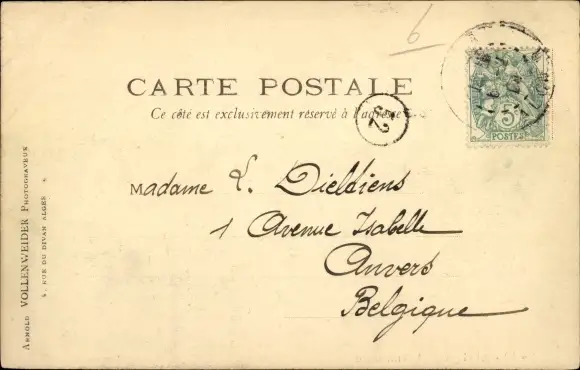 6
CARTE POSTALE
Ce côté est exclusivement réservé à l'adresse
52
5c
POSTES
Madame L. Dieltiens
1 Avenue Isabelle
Anvers
Belgique
Arnold VOLLENWEIDER Photograveur
4, RUE DU DIVAN ALGER